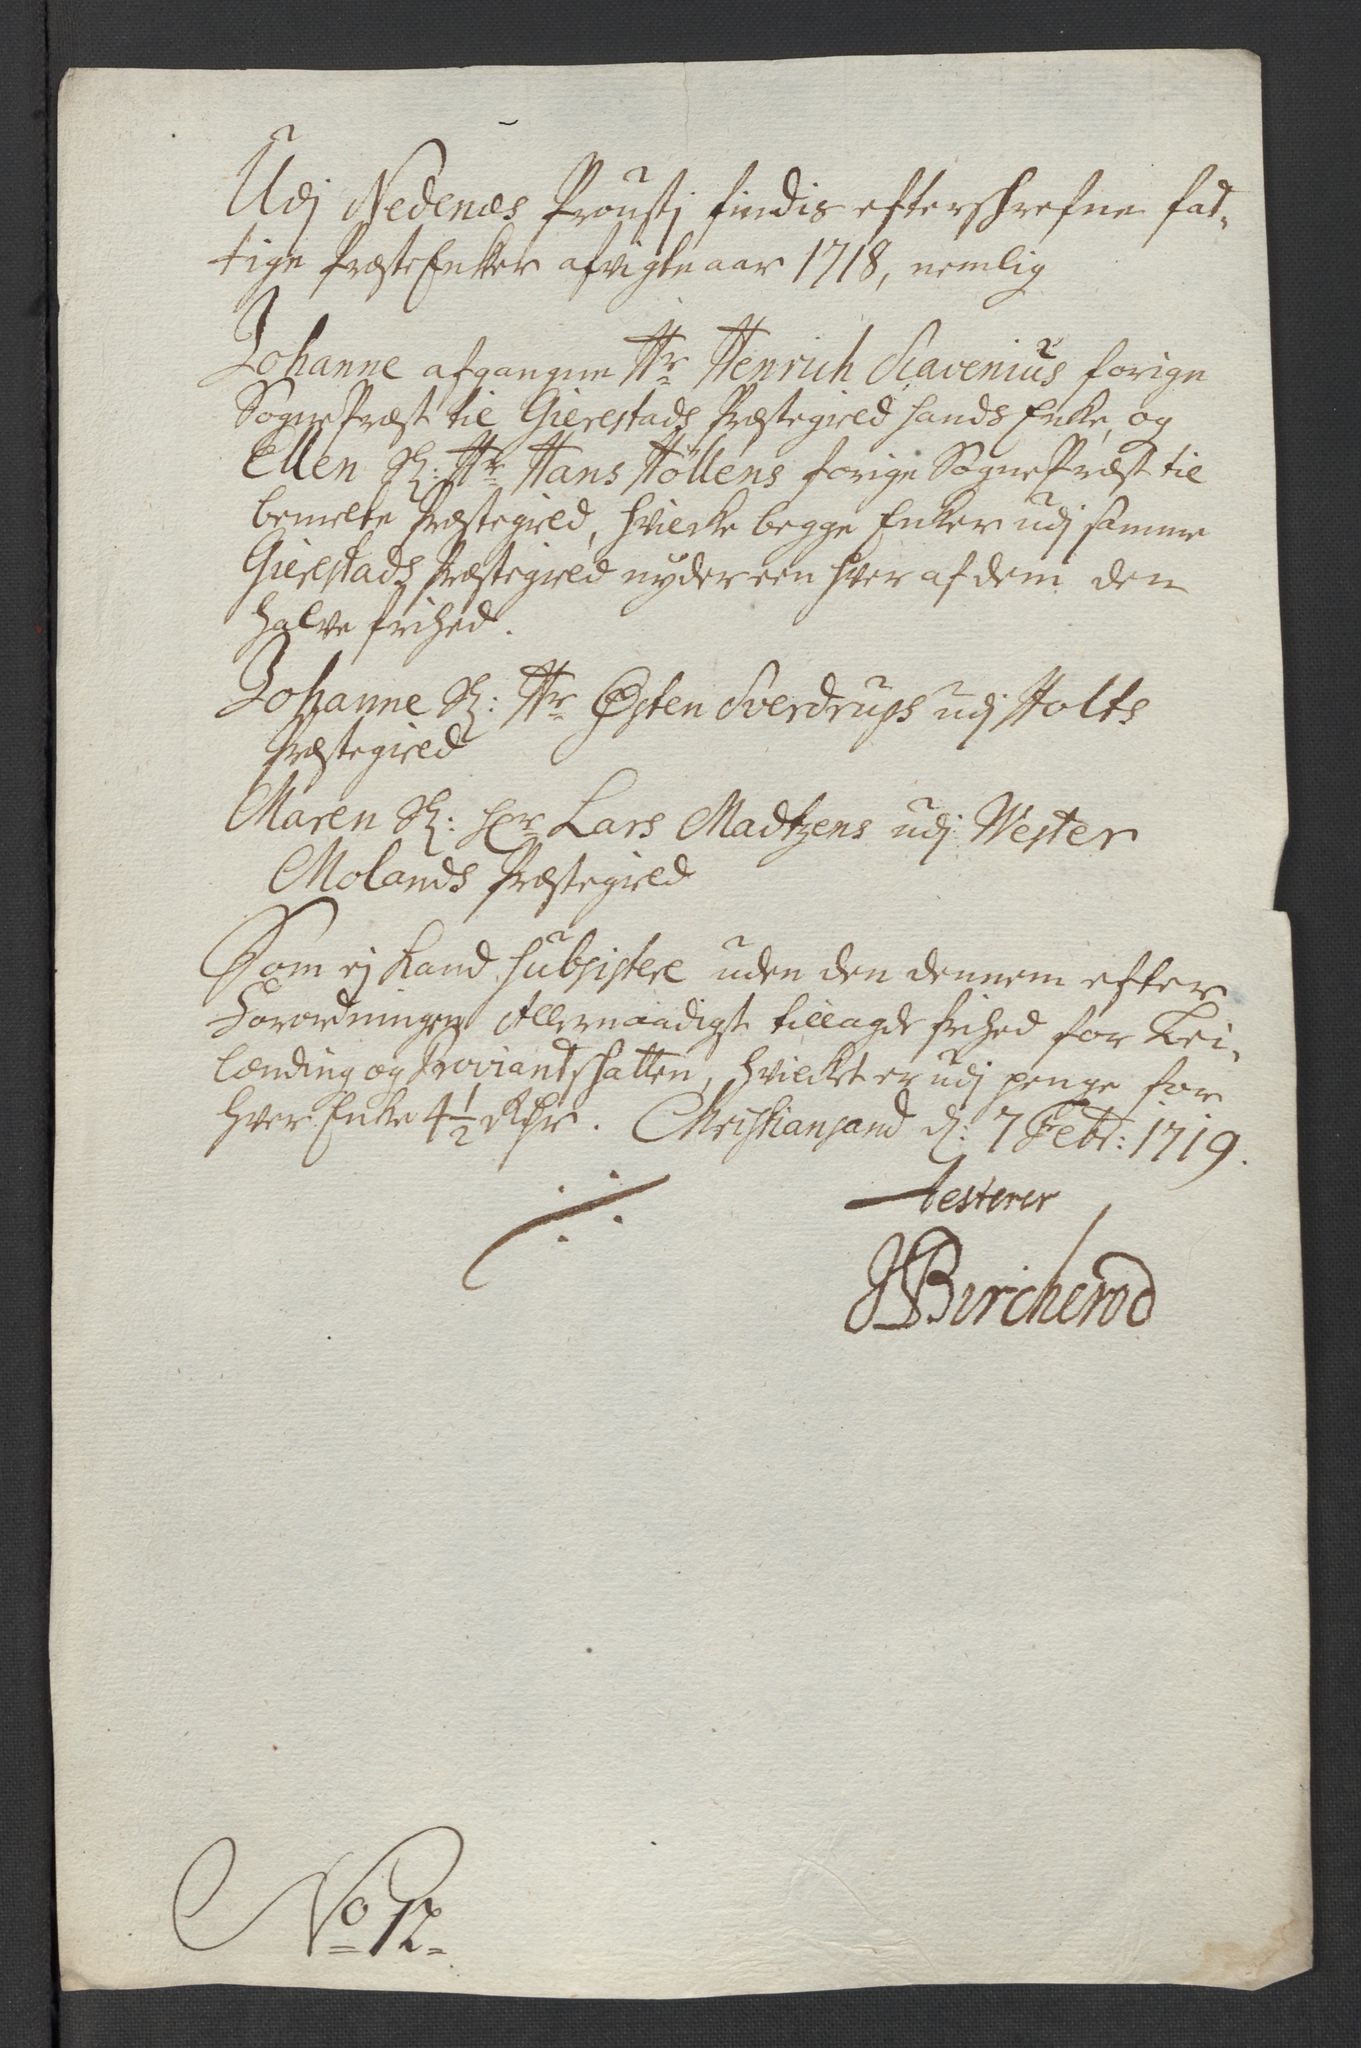 Udj Nedenæs Proustj findis efterskrefne fat-
tige PræsteEnker afvigte aar 1718, nemlig
Johanne afgangne Hr Henrich Scavenius forige
SognePræst til Gierestads Præstegield hands Enke, og
Ellen Sl: Hr Hans Höllens forige SognePræst til
bemelte Præstegield, hvilcke begge Enker udj samme
Gierestads Præstegield nyder een hver af dem den
halve frihed.
Johanne Sl: Hr Østen Sverdrups udj Holts
Præstegield
Maren Sl: Hr Lars Madtzens udj Wester
Molands Præstegield
Som ej kand subsistere uden den dennem efter
Forordningen Allernaadigst tillagde frihed for Lei-
lænding og Proviantskatten, hvilcket er udj penge for
hver Enke 4 1/2 Rdr. Christiansand d: 7 Febr: 1719.
testerer
JBircherod
No 12